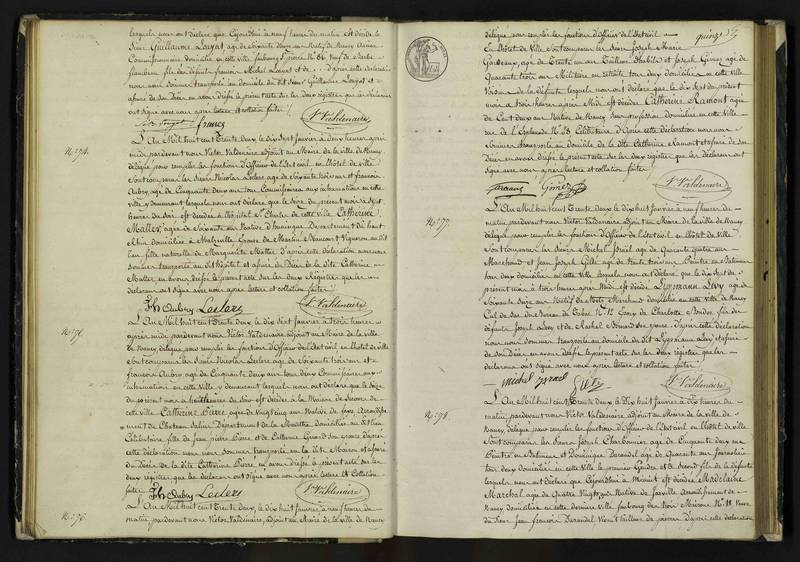 lesquels nous ont déclaré que Cejourd'hui à neuf heures du matin est décédé le
Sieur Guillaume Lorgat agé de soixante douze ans Natif de Nancy Ancien
Commissionnaire domicilié en cette ville, faubourg St pierre No 86 veuf de
fils des défunts françois Michel Lorgat et de d'après cette déclaration
nous nous sommes transporté au domicile du dit Sieur Guillaume Lorgat et
assuré de son Décès en avons dressé le présent acte sur les deux registres que les déclarans
ont signé avec nous après lecture et collation faites
francs V. Valdenaire
No 174.
L'An Mil huit cent Trente deux, le dix sept Janvier à deux heures après
midi pardevant nous Victor Valdenaire adjoint au Maire de la ville de Nancy
délégué pour remplir les fonctions d'officier de l'Etat civil, en l'hôtel de ville
sont comparus les Sieurs Nicolas Leclerc agé de soixante trois ans et françois
Aubry agé de Cinquante deux ans tous Commissaires aux inhumations en cette
ville y demeurant lesquels nous ont déclaré que le seize du présent mois à sept
heures du soir est décédée à l'hôpital St Charles de cette ville Catherine
Matter, agée de soixante ans Native d' Département du haut
Rhin domiciliée à Malzéville, fille naturelle de Marguerite Matter d'après cette déclaration nous nous
sommes transporté au dit hôpital et assuré du Décès de la dite Catherine
Matter en avons dressé le présent acte sur les deux Registres que les
déclarans ont signé avec nous après lecture et collation faites
fs Aubry Leclerc V. Valdenaire
No 175.
L'An Mil huit cent Trente deux le dix sept Janvier à trois heures
après midi pardevant nous Victor Valdenaire adjoint au Maire de la ville
de Nancy, délégué pour remplir les fonctions d'officier de l'Etat civil en l'hôtel de ville
sont comparus les Sieurs Nicolas Leclerc agé de soixante trois ans et
françois Aubry agé de Cinquante deux ans tous deux Commissaires aux
inhumations en cette ville y demeurant lesquels nous ont déclaré que le seize
du présent mois à huit heures du soir est décédée à la Maison de Secours de
cette ville Catherine Pierre, agée de vingt cinq ans Native de Arrondisse
ment de Chateau Salins Département de la Meurthe domiciliée au dit lieu
Célibataire fille de Jean pierre Pierre et de Catherine Girard son épouse d'après
cette déclaration nous nous sommes transporté en la dite Maison et assuré
du Décès de la dite Catherine Pierre en avons dressé le présent acte sur les
deux registres que les déclarans ont signé avec nous après lecture et collation
faites
fs Aubry Leclerc V. Valdenaire
No 176.
L'An Mil huit cent Trente deux, le dix huit Janvier à neuf heures du
matin, pardevant nous Victor Valdenaire, adjoint au Maire de la ville de Nancy
quinze
délégué pour remplir les fonctions d'officier de l'Etat civil
En l'hôtel de ville sont comparus les Sieurs Joseph Marie
agé de Trente ans et Joseph Giniez agé de
Quarante trois ans Militaire en retraite tous deux domiciliés en cette ville
Voisins de la défunte lesquels nous ont déclaré que le dix sept du présent
mois à trois heures après Midi est décédée Catherine Ramont agée
de Cent deux ans Native de Nancy Sans profession domiciliée en cette ville
rue de l'Esplanade No 23 Célibataire D'après cette déclaration nous nous
sommes transporté au domicile de la dite Catherine Ramont et assuré de son
Décès en avons dressé le présent acte sur les deux registres que les déclarans ont
signé avec nous après lecture et collation faites
Giniez V. Valdenaire
No 177.
L'An Mil huit cent Trente deux le dix huit Janvier à neuf heures du
matin, pardevant nous Victor Valdenaire adjoint au Maire de la ville de Nancy
délégué pour remplir les fonctions d'officier de l'Etat civil en l'hôtel de ville
sont comparus les Sieurs Michel Israël agé de Quarante quatre ans
Marchand et Jean Joseph Gillet agé de trente trois ans Peintre en Batimens
tous deux domiciliés en cette ville lesquels nous ont déclaré que le dix sept du
présent mois à trois heures après Midi est décédé Lippmann Levy agé de
soixante seize ans Natif de Metz Marchand domicilié en cette ville de Nancy
No 12 Epoux de Charlotte fils des
défunts Joseph Levy et de Michel son épouse. d'après cette déclaration
nous nous sommes transporté au domicile du dit Lippmann Levy et assuré
de son Décès en avons dressé le présent acte sur les deux registres que les
déclarans ont signé avec nous après lecture et collation faites
michel israel Gillet V. Valdenaire
No 178.
L'An Mil huit cent Trente deux le Dix huit Janvier à dix heures du
matin, pardevant nous Victor Valdenaire adjoint au Maire de la ville de
Nancy, délégué pour remplir les fonctions d'officier de l'Etat civil en l'hôtel de ville
sont comparus les Sieurs Joseph Charbonnier agé de Cinquante deux ans
Peintre en Batimens et Dominique agé de Quarante ans Journalier
tous deux domiciliés en cette ville le premier Gendre et le Second fils de la défunte
lesquels nous ont déclaré que Cejourd'hui à Minuit est décédée Madelaine
Marchal agée de Quatre Vingt ans Native de Arrondissement de
Nancy domiciliée en cette dernière ville, faubourg des trois Maisons No 18 Veuve
du Sieur Jean françois Vivant tailleur de pierres d'après cette déclaration